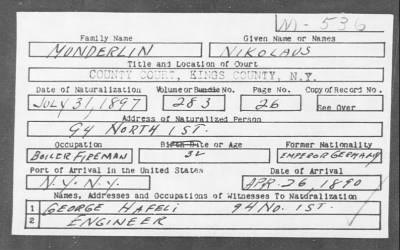 M-536
Family Name Given Name or Names
MUNDERLIN NIKOLAUS
Title and Location of Court
COUNTY COURT, KINGS COUNTY, N.Y.
Date of Naturalization Volume or Bundle No. Page No. Copy of Record No.
JULY 31, 1897 283 26 See Over
Address of Naturalized Person
94 NORTH 1ST.
Occupation Birth Date or Age Former Nationality
BOILER FIREMAN 32 EMPEROR GERMANY
Port of Arrival in the United States Date of Arrival
N.Y. N.Y. APR. 26, 1890
Names, Addresses and Occupations of Witnesses To Naturalization
1 GEORGE HAFELI 94 NO. 1ST.
2 ENGINEER